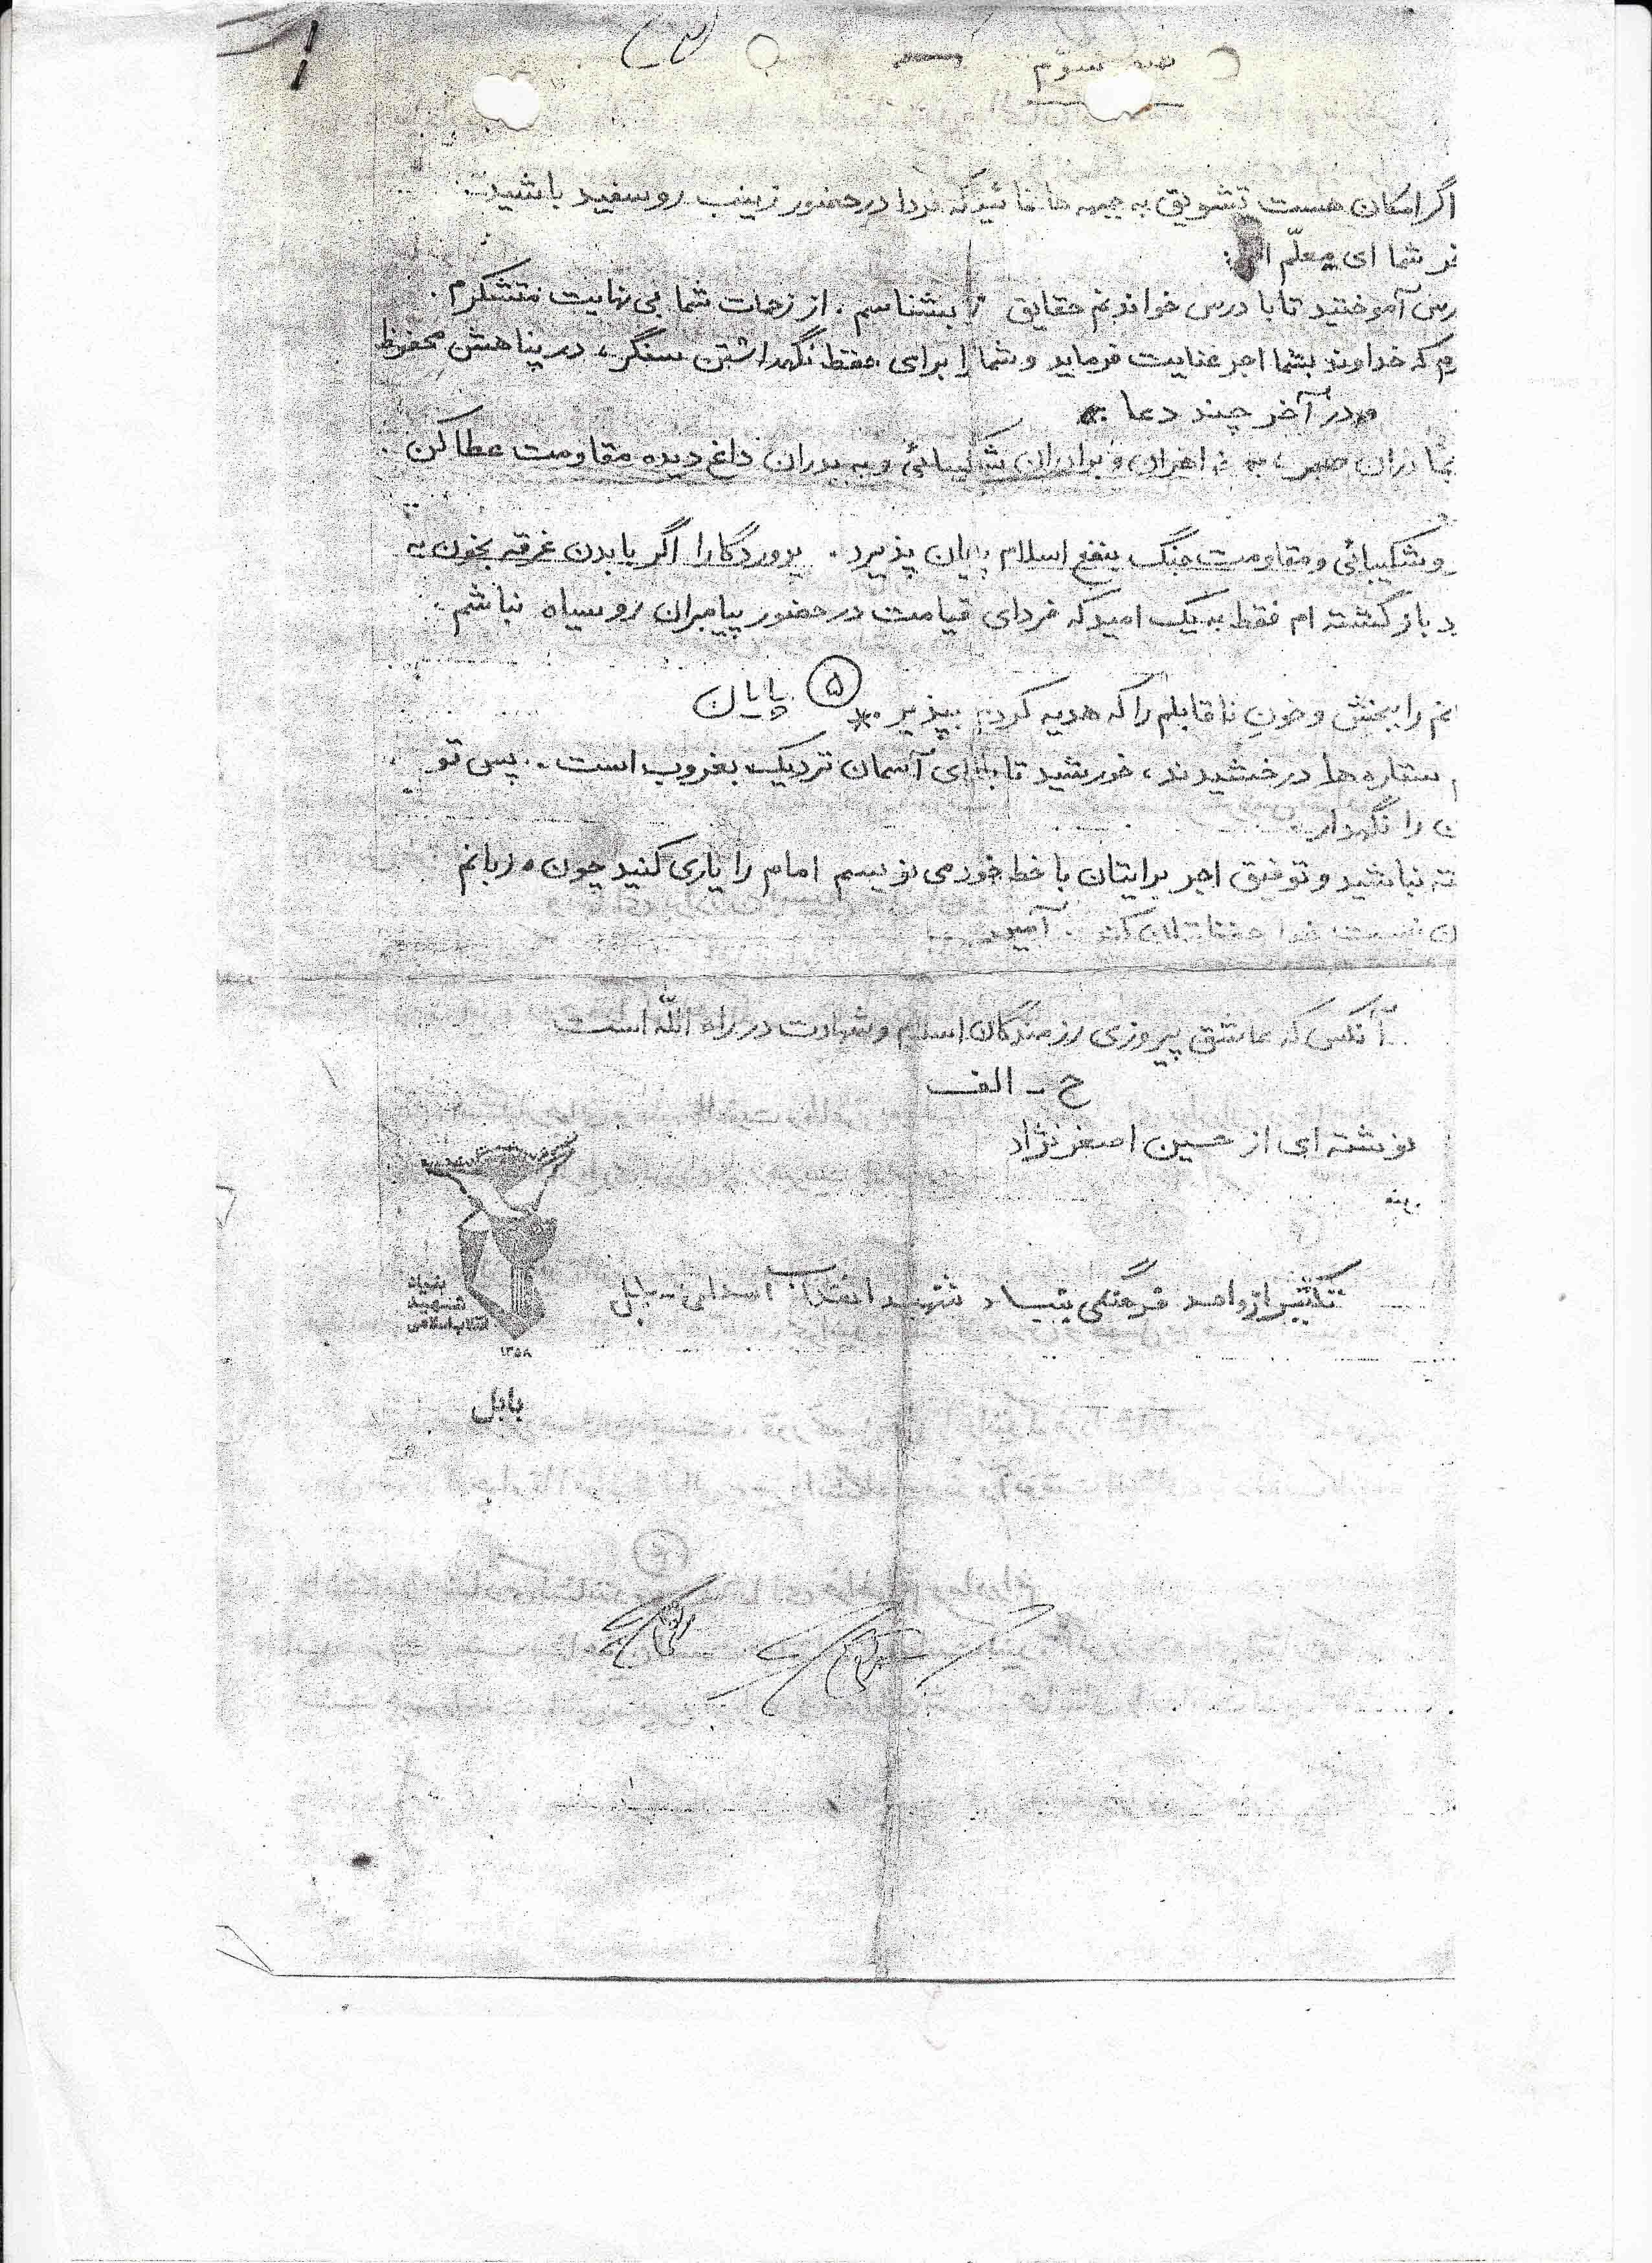 سوّم
اگر امکان هست تشویق به جبهه ها نمائید که فردا در حضور زینب روسفید باشید
شما ای معلّم
آموختید تا با درس خواندنم حقایق را بشناسم . از زحمات شما بی نهایت متشکرم .
که خداوند بشما اجر عنایت فرماید و شما را برای حفظ نگهداشتن سنگر، در پناهش محفوظ
در آخر چند دعا :
صبر، به خواهران و برادران شکیبائی و به پدران داغ دیده مقاومت عطا کن .
و شکیبائی و مقاومت جنگ بنفع اسلام پایان پذیرد . پروردگارا اگر با بدن غرقه بخون به
باز گشته ام فقط به یک امید که فردای قیامت در حضور پیامبران روسیاه نباشم .
را ببخش و خونِ ناقابلم را که هدیه کردم بپذیر .* ۵ پایان
ستاره ها درخشیدند ، خورشید تابان آسمان نزدیک بغروب است .. پس تو
را نگهدار
نباشید و توفیق اجر برایتان با خط خود می نویسم امام را یاری کنید چون زبانم
خدا حفظتان کند . آمین
آنکس که عاشق پیروزی رزمندگان اسلام و شهادت در راه اللّه است
ح - الف
نوشته ای از حسین اصغرنژاد
تکثیر از واحد فرهنگی بنیاد شهید انقلاب اسلامی - بابل
بنیاد
شهید
انقلاب اسلامی
۱۳۵۸
بابل